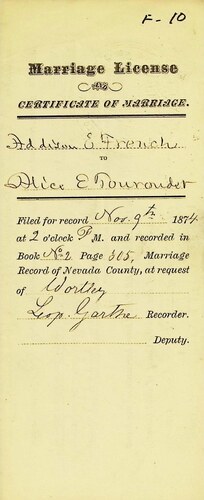 F - 10
Marriage License
OR
CERTIFICATE OF MARRIAGE.
Addison E French
TO
Alice E Tourondet
Filed for record Nov. 9th 1874
at 2 o'clock P M. and recorded in
Book No 2 Page 305, Marriage
Record of Nevada County, at request
of Worthy
Leop. Garthe Recorder.
Deputy.